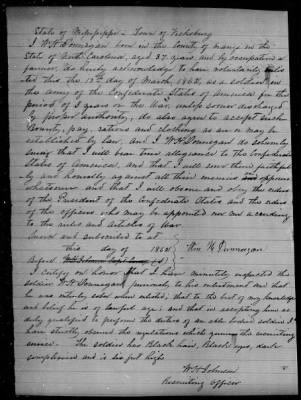 State of Mississippi - Town of Vicksburg
I W. H. Dunnagan born in the County of in the
State of North Carolina, aged 37 years and by occupation a
farmer do hereby acknowledge to have voluntarily
this the 15th day of March, 1862, as a soldier in
the army of the Confederate States of America for the
period of 3 years or the War, unless sooner discharged
by proper authority, do also agree to accept such
Bounty, pay, rations and clothing as are or may be
established by law, and I W H Dunnagan do solemnly
swear that I will bear true allegiance to the Confederate
States of America, and that I will serve them
and honestly against all their enemies and
whatsoever and that I will observe and obey the orders
of the President of the Confederate States and the orders
of the officers who may be appointed over me according
to the rules and Articles of War
Sworn and subscribed to at
this day of 1862 Wm H Dunnagan
Before
I certify on honor that I have minutely inspected this
soldier W H Dunnagan previously to his enlistment and that
he was entirely sober when enlisted, that to the best of my knowledge
and belief he is of lawful age; and that in accepting him as
duly qualified to perform the duties of an able bodied soldier I
have strictly observed the regulations which the recruiting
service. The soldier has Black hair, Black eyes, dark
complexion and is six feet high
W H Johnson
Recruiting Officer